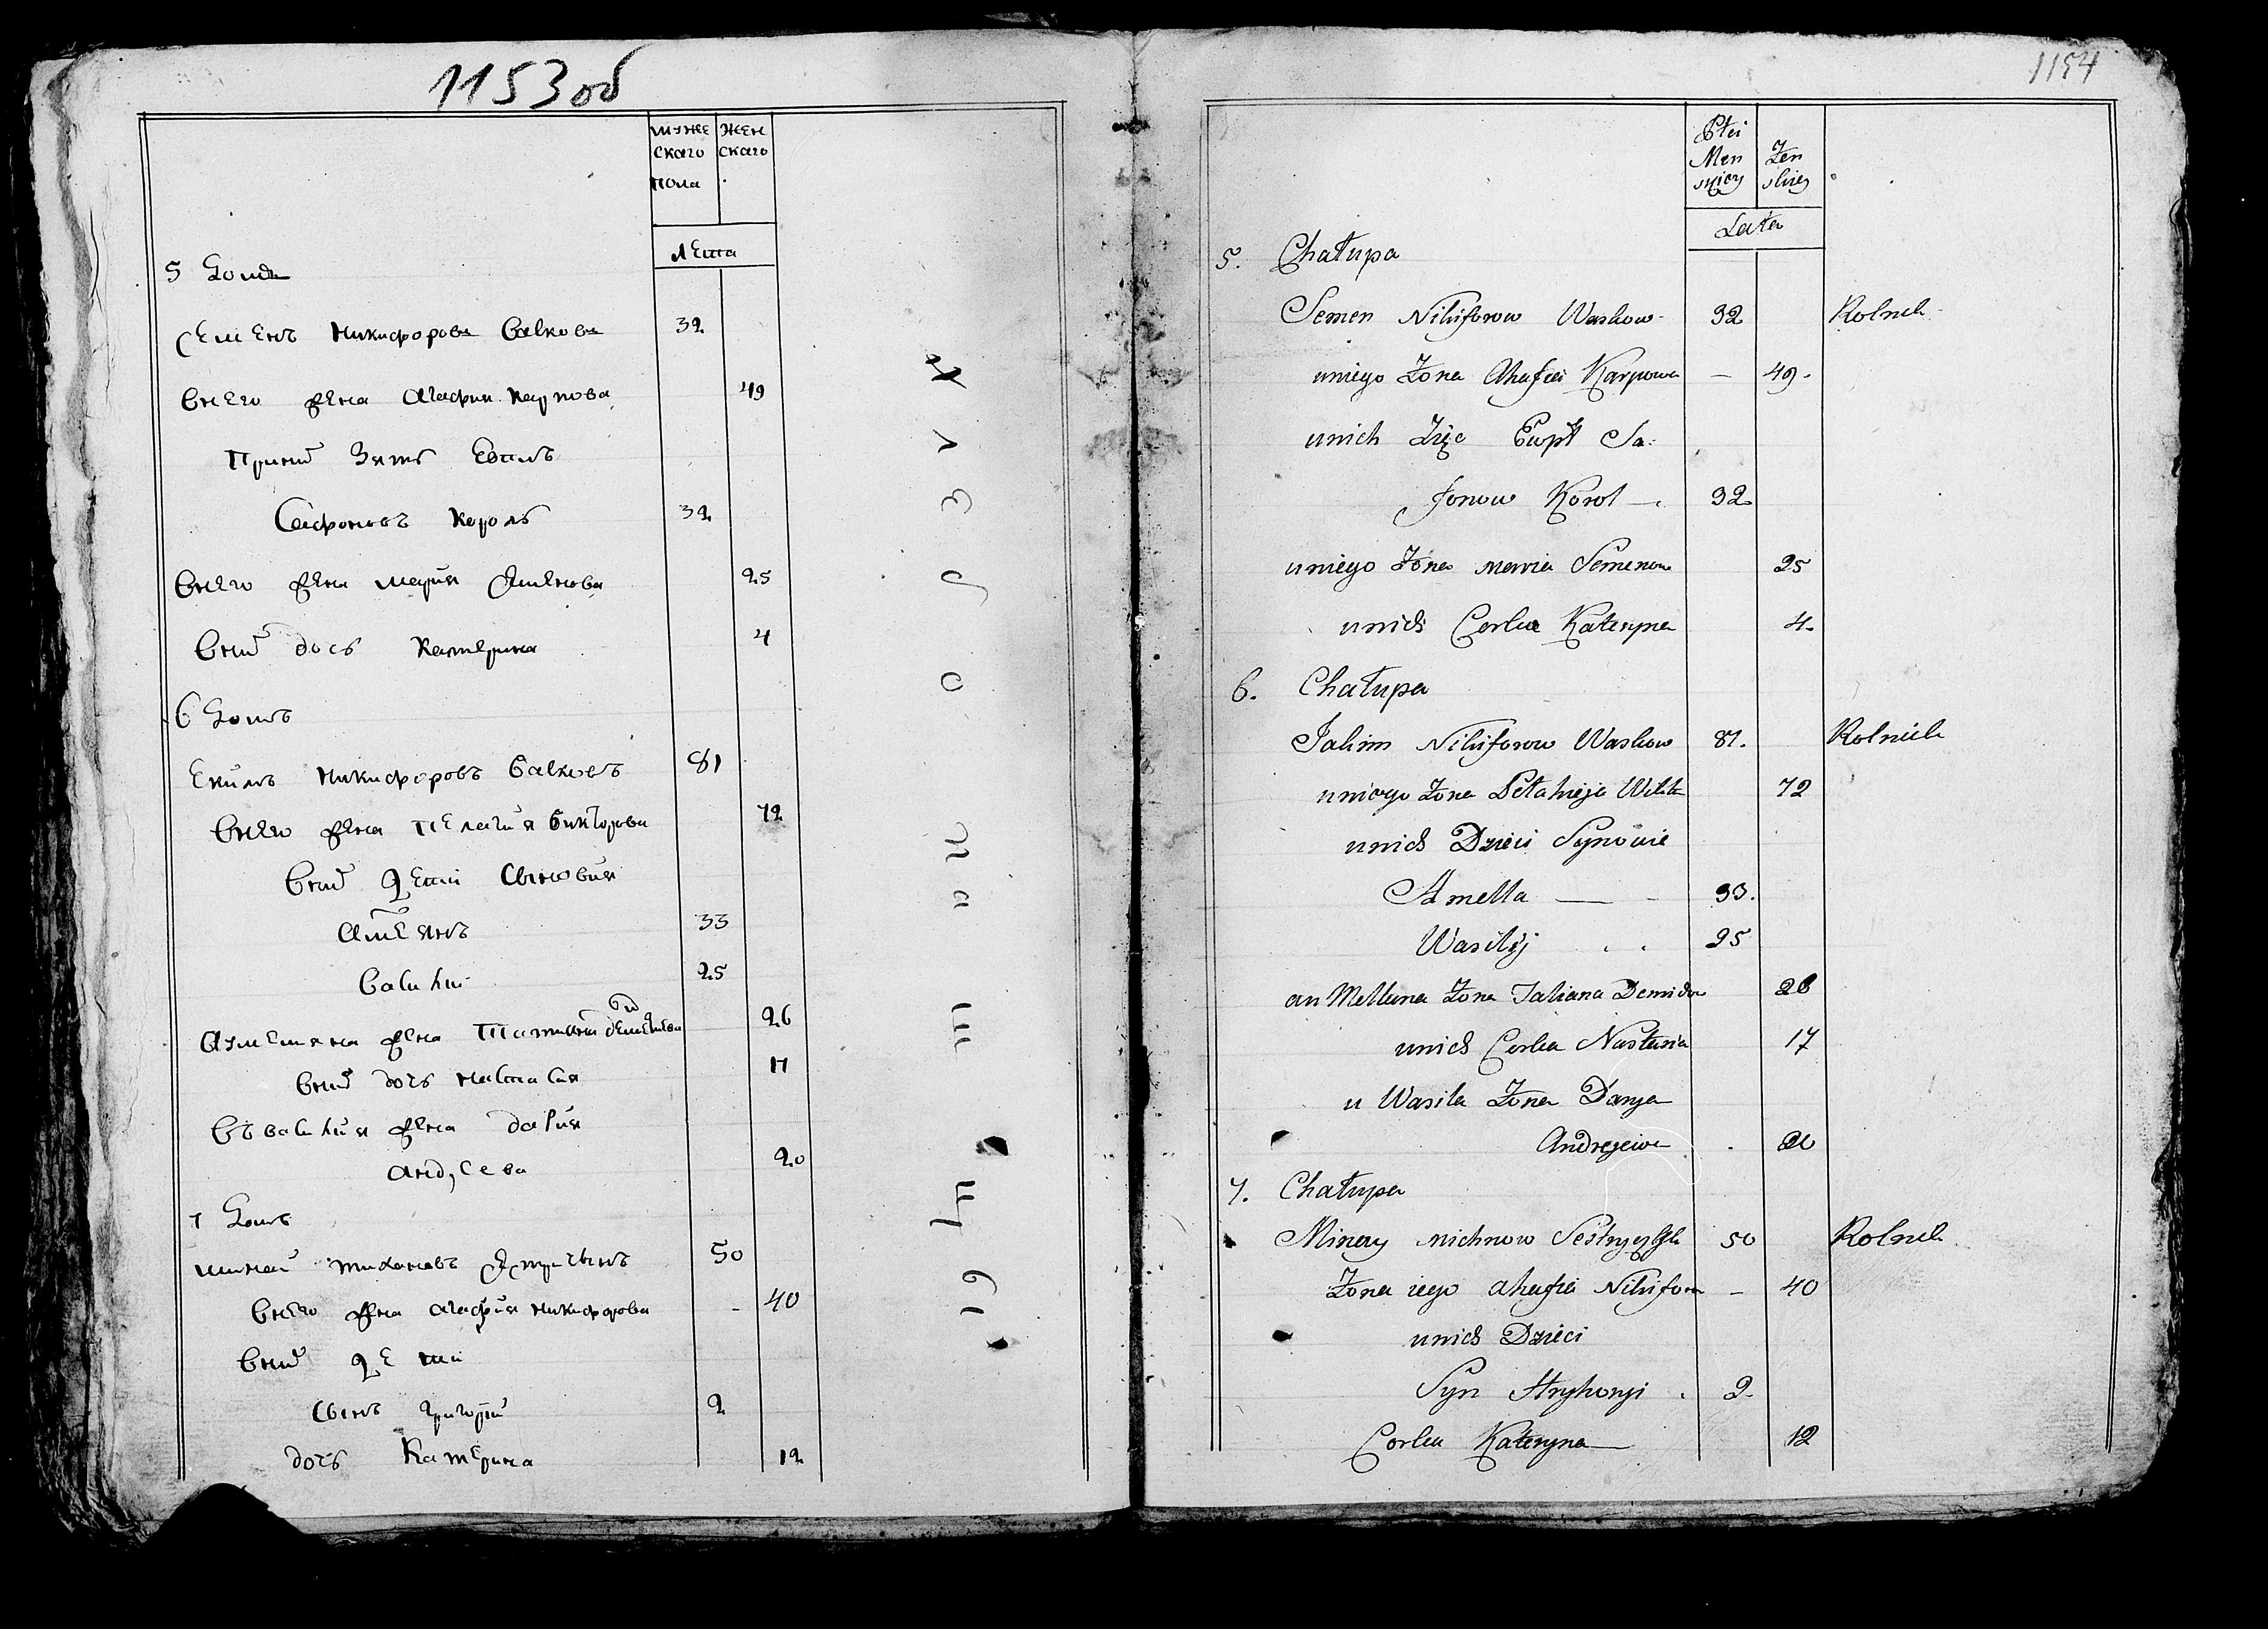 1153об
муже жен
скаго скаго
пола
лета
5 Домъ
Семенъ Никифоровъ Васковъ 32
Внего жена Агафия Карпова 49
Прини Зять
Сафоновъ Король 32
Внего жена Мария Семенова 25
Вних дочь Катерина 4
6 Домъ
Екимъ Никифоровъ Васковъ 81
Внего жена Пелагия Викторова 72
Вних дети Сыновия
33
Василий 25
жена Татиана 26
Вних дочь Настасия 17
Василия жена Дария
Андреева 20
7 Домъ
Минай 50
Внего жена Агафия Никифорова - 40
Вних дети
Сынъ Григорий 2
дочь Катерина 12
1154
Płci
Men Żen
skiey skiey
Lata
5. Chałupa
Semen Nikiforow Waskow 32 Rolnik
uniego Żona Ahafia Karpowa — 49.
unich Zięc Sa-
fonow Korol — 32
uniego Żona Maria Semenow 25
unich Corka Kateryna 4.
6. Chałupa
Jakim Nikiforow Waskow 81. Rolnik
uniego Żona Pełahieja 72
unich Dzieci Synowie
33.
Wasiley 25
Żona Taliana Demidow 26
unich Corka Nastasia 17
u Wasila Żona Darya
Andrejewa 20
7. Chałupa
Miney Michnow 50 Rolnik
Żona iego Ahafia Nikifora — 40
unich Dzieci
Syn Hryhoryi 2.
Corka Kateryna 12